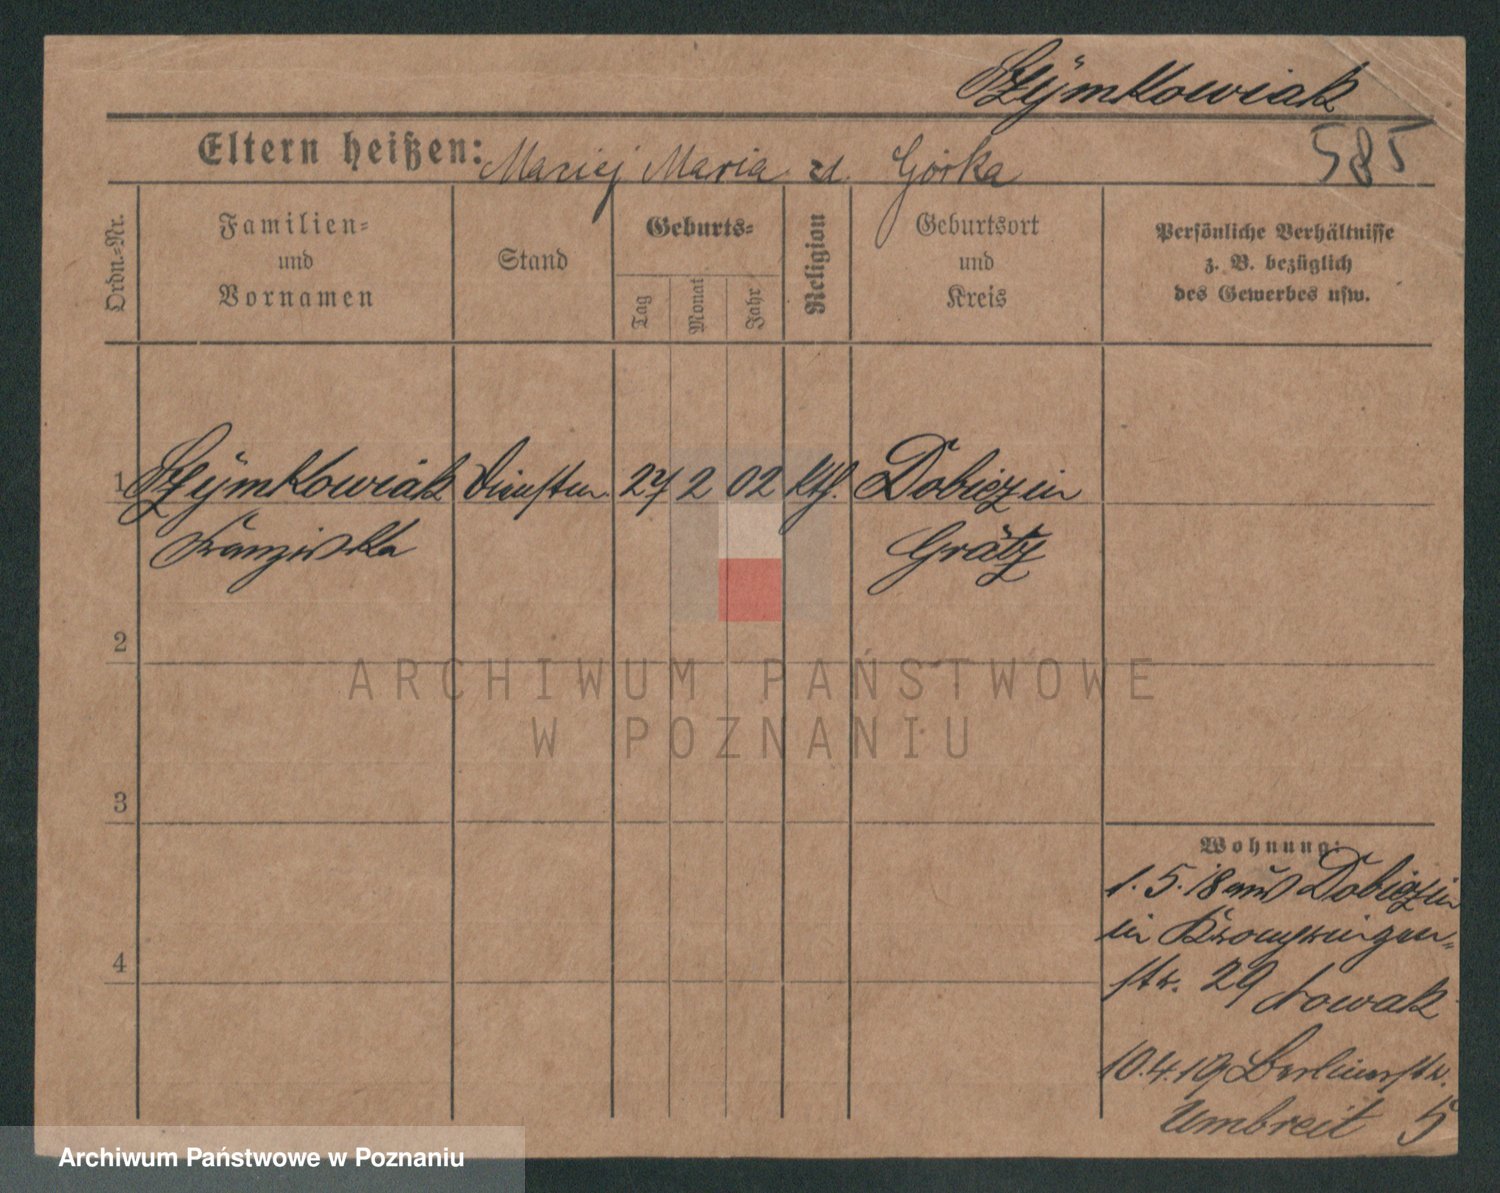 Szÿmkowiak
Eltern heißen: Maciej Maria z d. Górka
585
Ordn.-Nr.
Familien-
und
Vornamen
Stand
Geburts-
Tag
Monat
Jahr
Religion
Geburtsort
und
Kreis
Persönliche Verhältnisse
z. B. bezüglich
des Gewerbes usw.
1 Szÿmkowiak Dienstm. 27 2 02 kth. Dobiezin
Franziska Grätz
2
ARCHIWUM PAŃSTWOWE
W POZNANIU
3
Wohnung:
1. 5. 18 aus Dobiezin
in Kronprinzen-
str. 29 Nowak
4
10.4.19 Berlinerstr.
Umbreit 5
Archiwum Państwowe w Poznaniu